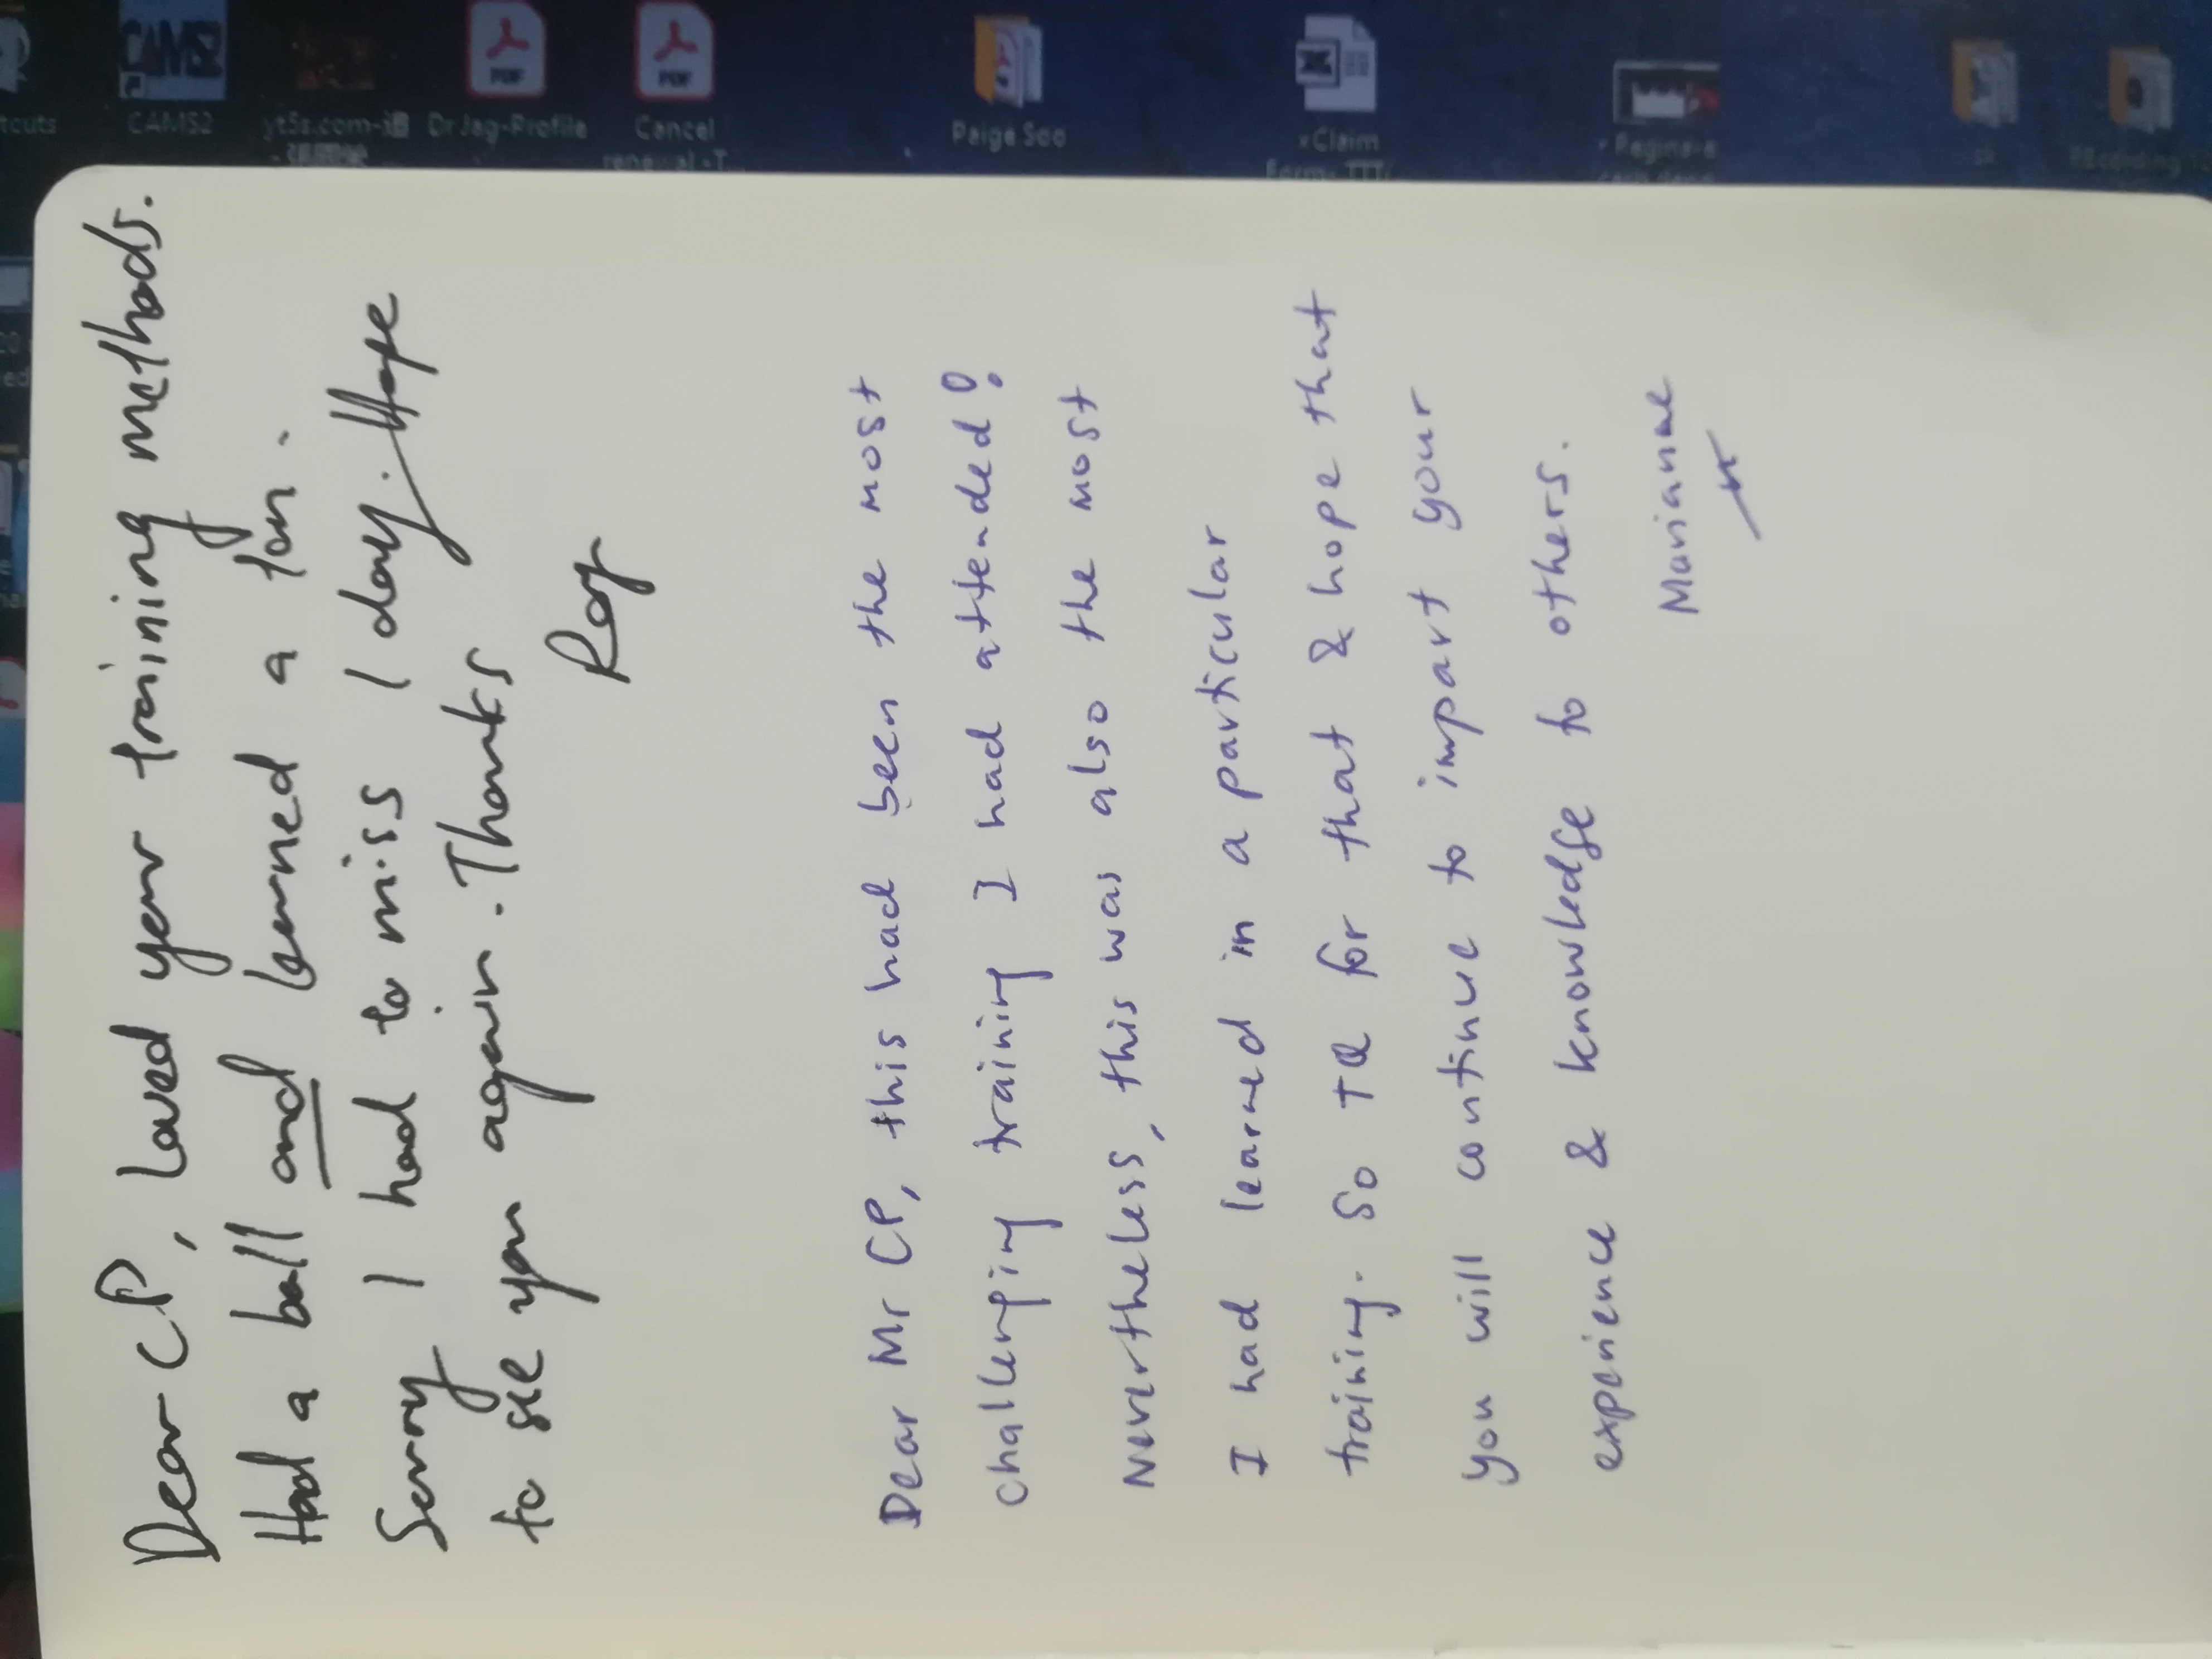 CAMS2
yt5s.com-
DrJag-Profile
PDF
Cancel
renewal -T...
PDF
Paige Soo
xClaim
Form- TTT/
Dear CP, Loved your training methods.
Had a ball and learned a ton.
Sorry I had to miss 1 day. Hope
to see you again. Thanks
Dear Mr CP, this had been the most
challenging training I had attended!
Nevertheless, this was also the most
I had learned in a particular
training. So TQ for that & hope that
you will continue to impart your
experience & knowledge to others.
Marianne